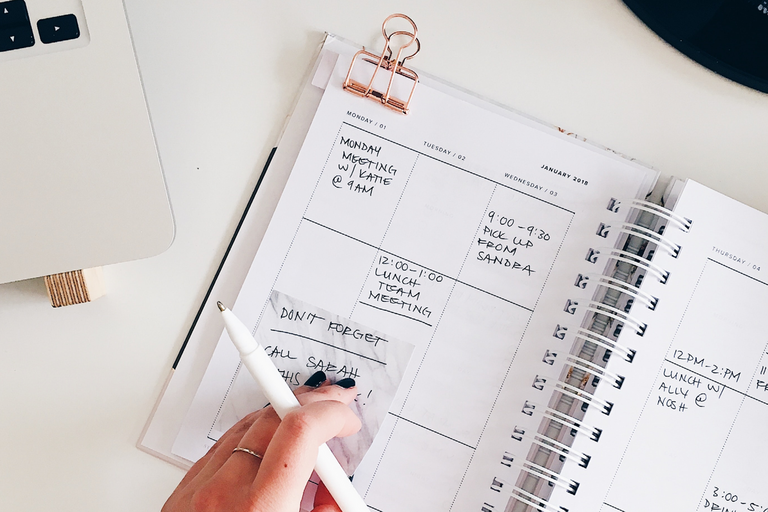 MONDAY / 01
MONDAY
MEETING
W/ KATIE
@ 9AM
TUESDAY / 02
12:00-1:00
LUNCH
TEAM
MEETING
JANUARY 2018
WEDNESDAY / 03
9:00-9:30
PICK UP
FROM
SANDRA
DON'T FORGET
CALL SARAH
THIS
!
THURSDAY / 04
12PM-2:PM
LUNCH W/
ALLY @
NOSH
3:00-5